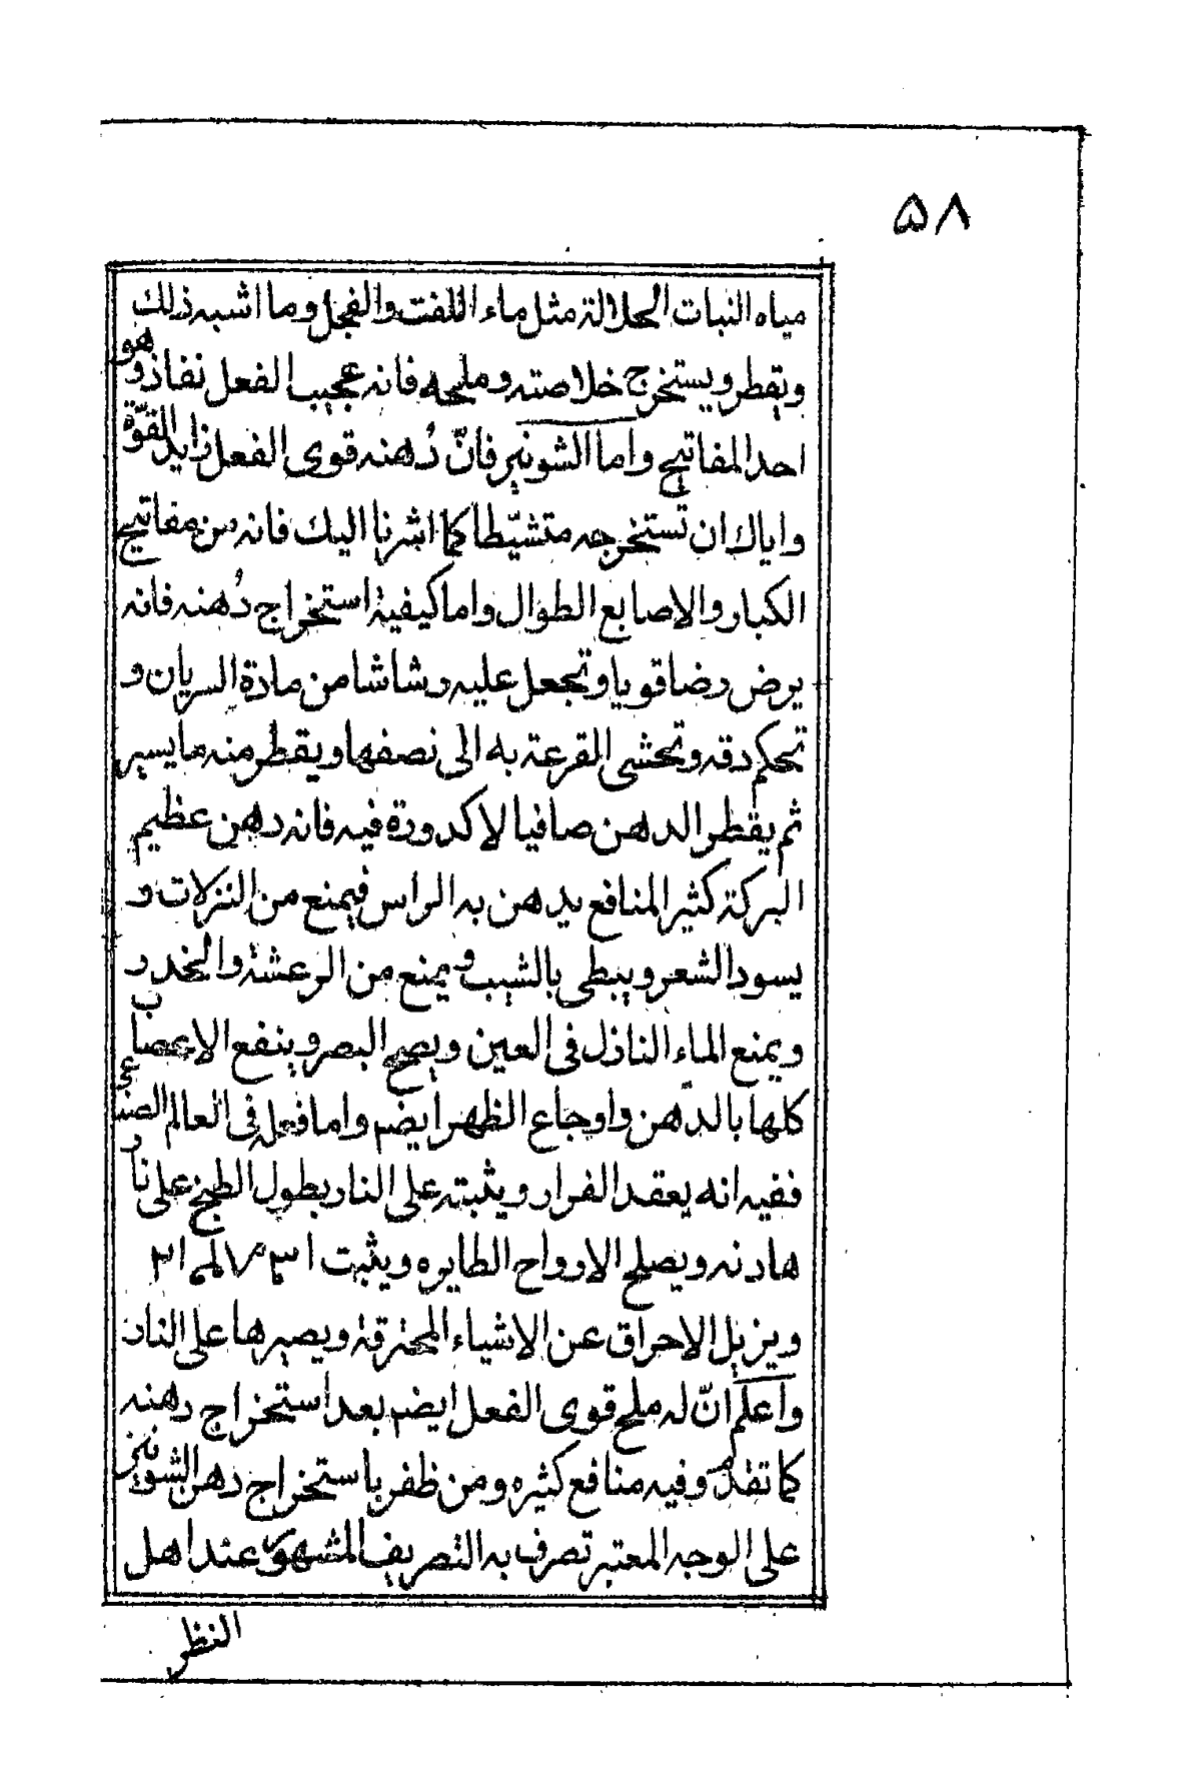 ۵۸
مياه النبات الحلالة مثل ماء اللفت والفجل وما اشبه ذلك
ويقطر ويستخرج خلاصته وملحه فانه عجيب الفعل نفاذ وهو
احد المفاتيح واما الشونيز فانّ دُهنه قوى الفعل زايد القوّة
واياك ان تستخرجه متشيّطا كما اشرنا اليك فانه من مفاتيح
الكبار والاصابع الطوال واما كيفية استخراج دُهنه فانه
يرض رضا قويا وتجعل عليه رشاشا من مادة السريان و
تحكم دقه وتحشى القرعة به الى نصفها ويقطر منه ما يسير
ثم يقطر الدهن صافيا لا كدورة فيه فانه دهن عظيم
البركة كثير المنافع يدهن به الراس فيمنع من النزلات و
يسود الشعر ويبطى بالشيب ويمنع من الرعشة والخدر
ويمنع الماء النازل فى العين ويصح البصر وينفع الاعصاب
كلها بالدّهن واوجاع الظهر ايضم واما فعله فى العالم الصناعى
ففيه انه يعقد الفرار ويثبته على النار بطول الطبخ على نار
هادنه ويصلح الارواح الطايره ويثبت
ويزيل الاحراق عن الاشياء المحترقة ويصيرها على النار
واعلم انّ له ملح قوى الفعل ايضم بعد استخراج دهنه
كما تقدم وفيه منافع كثيره ومن ظفر باستخراج دهن الشونيز
على الوجه المعتبر تصرف به التصريف المشهور عند اهل
النظر